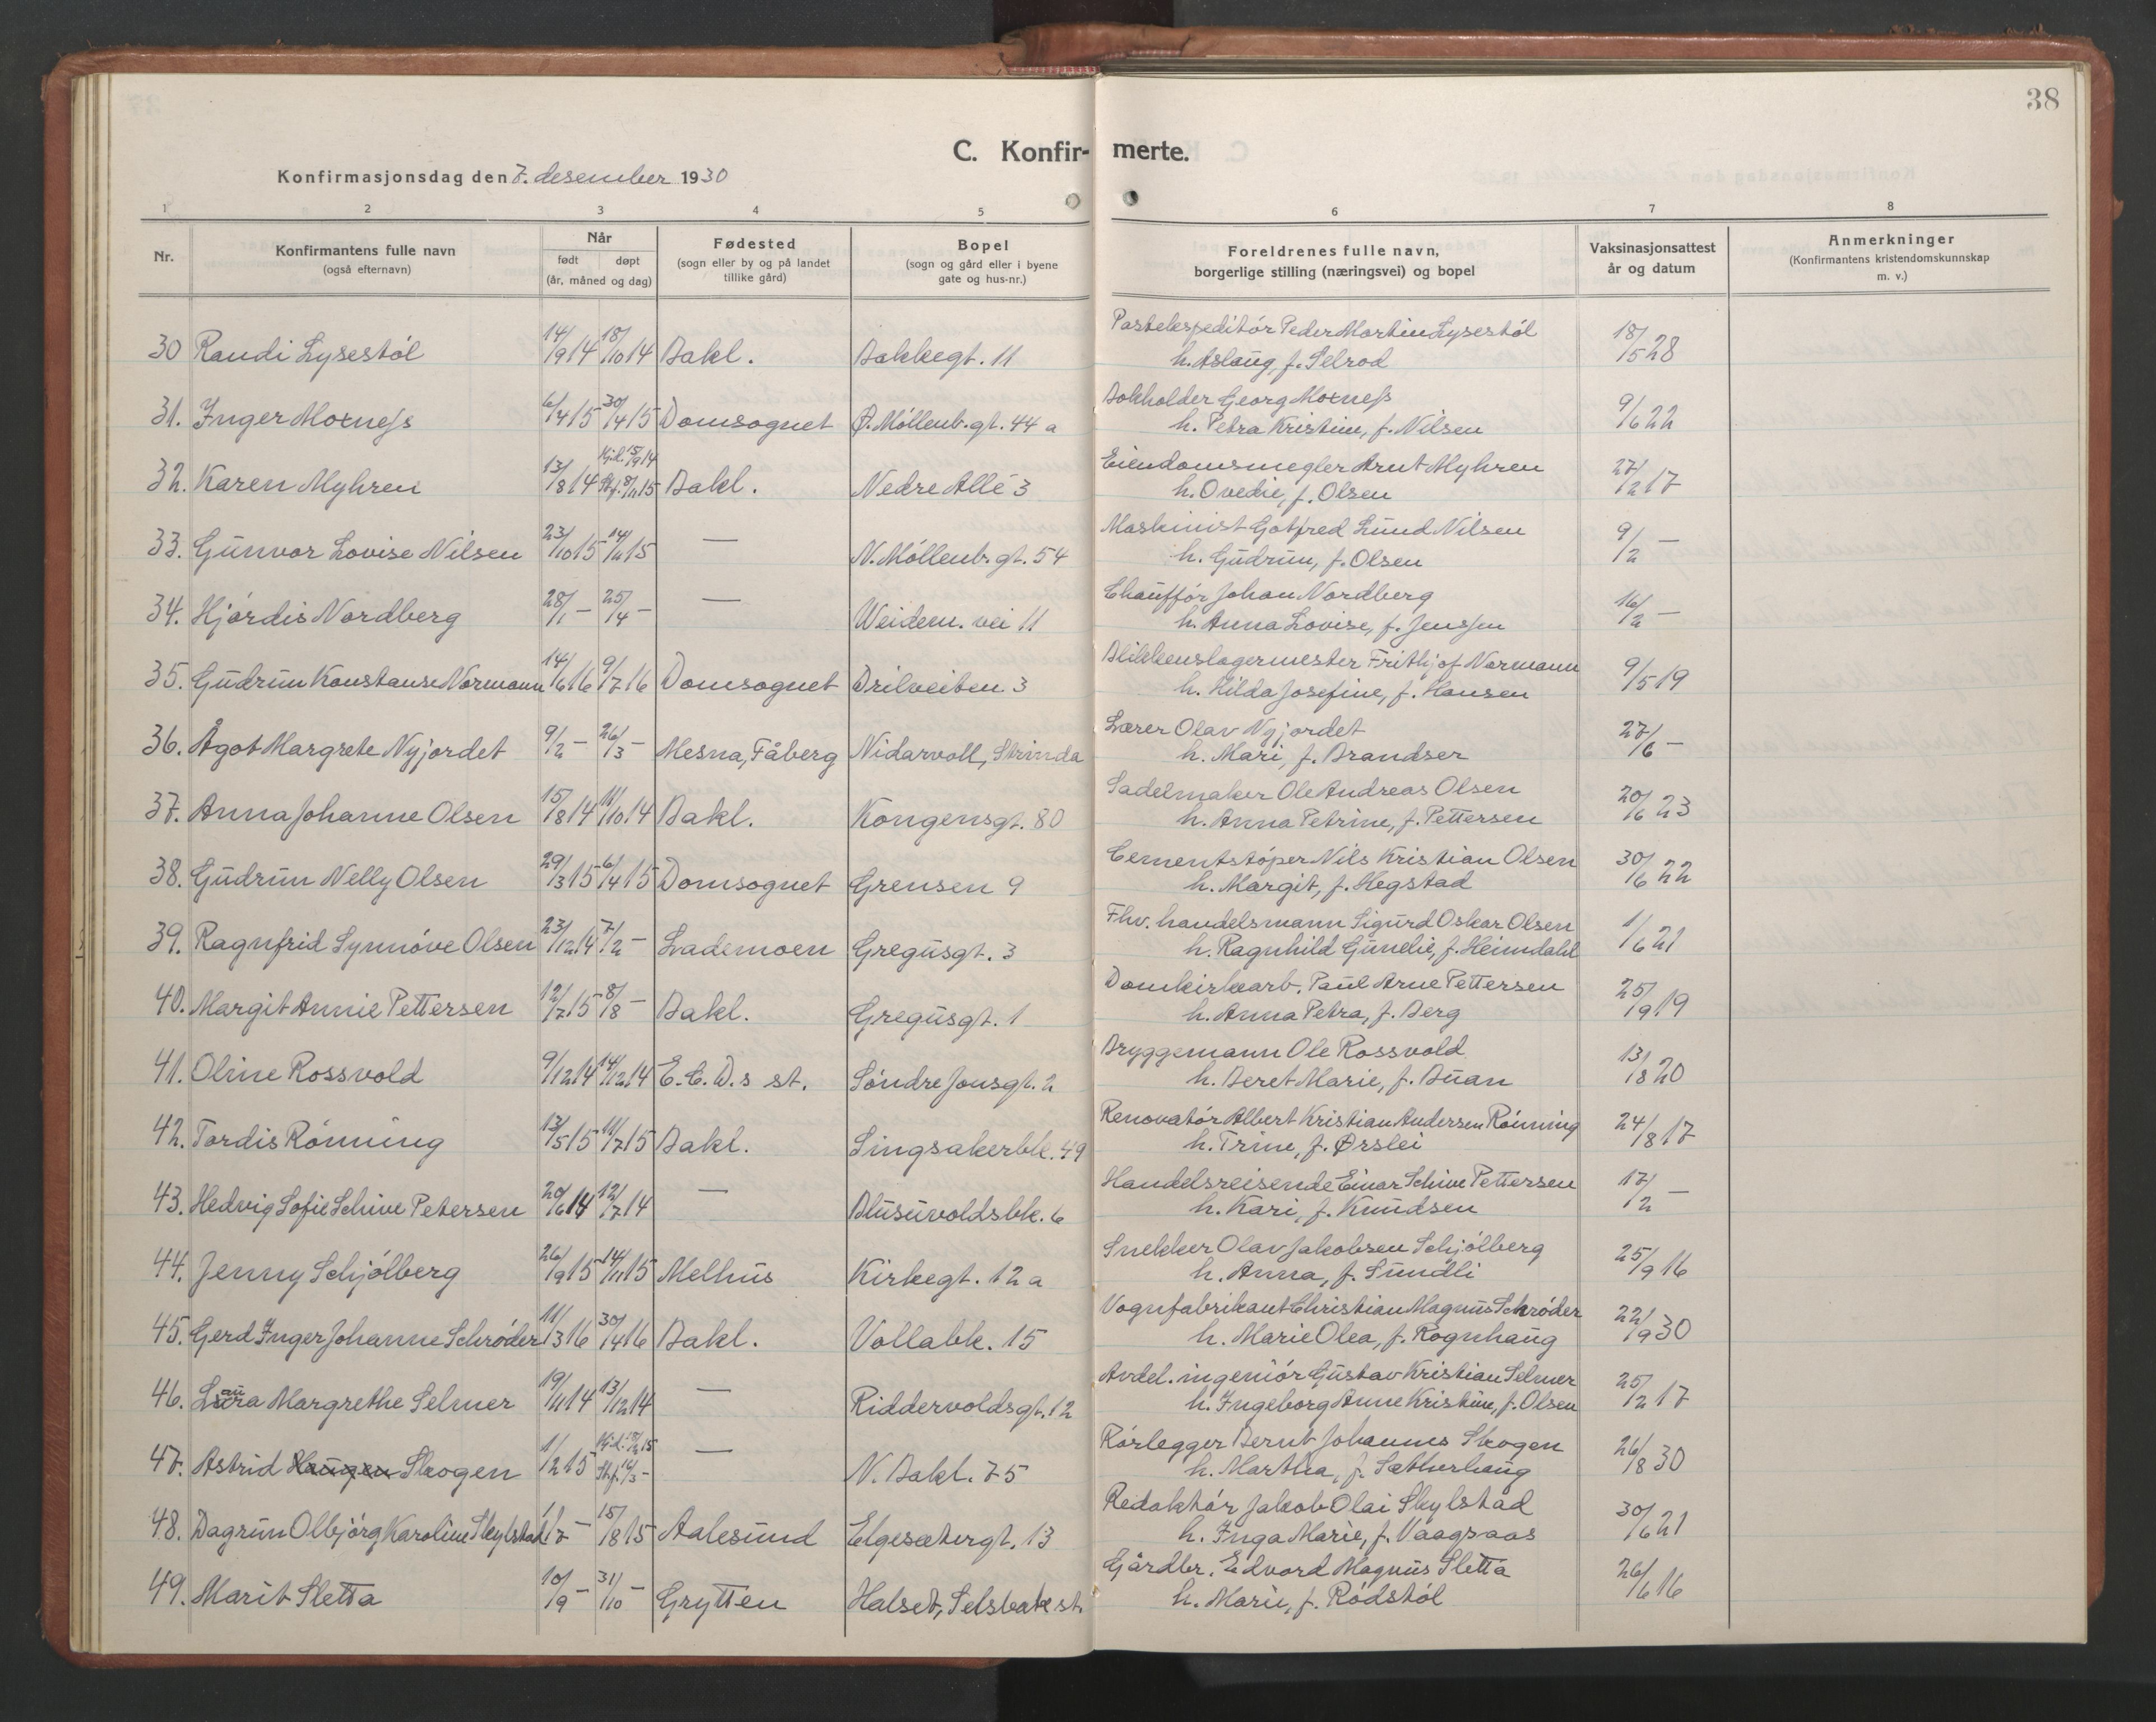 38
C. Konfirmerte.
Konfirmasjonsdag den 7. desember 1930
1 2 3 4 5 6 7 8
Nr. Konfirmantens fulle navn (også efternavn) Når født døpt (år, måned og dag) Fødested (sogn eller by og på landet tillike gård) Bopel (sogn og gård eller i byene gate og hus-nr.) Foreldrenes fulle navn, borgerlige stilling (næringsvei) og bopel Vaksinasjonsattest år og datum Anmerkninger (Konfirmantens kristendomskunnskap m. v.)
30 Randi Lysestöl 14/9 14 18/10 14 Bakl. Bakkegt. 11 Postekspeditör Peder Martin Lysestöl 18/5 28
h. Aslaug, f. Selrod
31. Inger Moxness 6/4 15 30/4 15 Domsognet Ø. Möllenb. gt. 44 a Bokholder Georg Moxness 9/6 22
h. Petra Kristine, f. Nilsen
32. Karen Myhren 13/8 14 Hjd. 15/9 14 Stf. 8/2 15 Bakl. Nedre Allé 3 Eiendomsmegler Arnt Myhren 27/2 17
h. Ovedie, f. Olsen
33. Gunvor Lovise Nilsen 23/10 15 14/11 15 — N. Möllenb. gt. 54 Maskinist Gotfred Lund Nilsen 9/2 —
h. Gudrun, f. Olsen
34. Hjördis Nordberg 28/1 — 25/4 — — Weidem. vei 11 Chaufför Johan Nordberg 16/2 —
h. Anna Lovise, f. Jenssen
35. Gudrun Konstanse Normann 14/6 16 9/7 16 Domsognet Brilveiten 3 Blikkenslagermester Frithjof Normann 9/5 19
h. Hilda Josefine, f. Hansen
36. Ågot Margrete Nyjordet 9/2 — 26/3 — Mesna, Fåberg Nidarvoll, Strinda Lærer Olav Nyjordet 27/6 —
h. Mari, f. Brandser
37. Anna Johanne Olsen 15/8 14 11/10 14 Bakl. Kongensgt. 80 Sadelmaker Ole Andreas Olsen 20/6 23
h. Anna Petrine, f. Pettersen
38. Gudrun Nelly Olsen 29/3 15 6/4 15 Domsognet Grensen 9 Cementstöper Nils Kristian Olsen 30/6 22
h. Margit, f. Hegstad
39. Ragnfrid Synnöve Olsen 23/12 14 7/2 — Lademoen Gregusgt. 3 Fhv. handelsmann Sigurd Oskar Olsen 1/6 21
h. Ragnhild Gunelie, f. Heimdahl
40. Margit Annie Pettersen 12/7 15 8/8 — Bakl. Gregusgt. 1 Domkirkearb. Paul Arne Pettersen 25/9 19
h. Anna Petra, f. Berg
41. Oline Rossvold 9/12 14 14/12 14 E.C.D.s st. Söndre Jonsgt. 2 Bryggemann Ole Rossvold 13/8 20
h. Beret Marie, f. Buan
42. Tordis Rönning 13/5 15 11/7 15 Bakl. Singsakerbk. 49 Renovatör Albert Kristian Andersen Rönning 24/8 17
h. Trine, f. Ørslei
43. Hedvig Sofie Schive Petersen 20/6 14 12/7 14 — Blusuvoldsbk. 6 Handelsreisende Einar Schive Pettersen 17/2 —
h. Kari, f. Knudsen
44. Jenny Schjölberg 26/9 15 14/11 15 Melhus Kirkegt. 12 a Snekker Olav Jakobsen Schjölberg 25/9 16
h. Anna, f. Sundli
45. Gerd Inger Johanne Schröder 11/3 16 30/4 16 Bakl. Vollabk. 15 Vognfabrikant Christian Magnus Schröder 22/9 30
h. Marie Olea, f. Rognhaug
46. Laura Margrethe Selmer 19/11 14 13/12 14 — Riddervoldsgt. 12 Avdel. ingeniör Gustav Kristian Selmer 25/2 17
h. Ingeborg Anne Kristine, f. Olsen
47. Astrid Haugen Skogen 1/2 15 — N. Bakl. 75 Rörlegger Bernt Johannes Skogen 26/8 30
h. Martha, f. Sætherhaug
48. Dagrun Olbjörg Karoline Skylstad 1/7 — 15/8 15 Aalesund Elgesætergt. 13 Redaktör Jakob Olai Skylstad 30/6 21
h. Inga Marie, f. Vaagsaas
49. Marit Sletta 10/9 — 31/10 — Grytten Halset, Selsbak st. Gårdbr. Edvard Magnus Sletta 26/6 16
h. Marie, f. Rödstöl